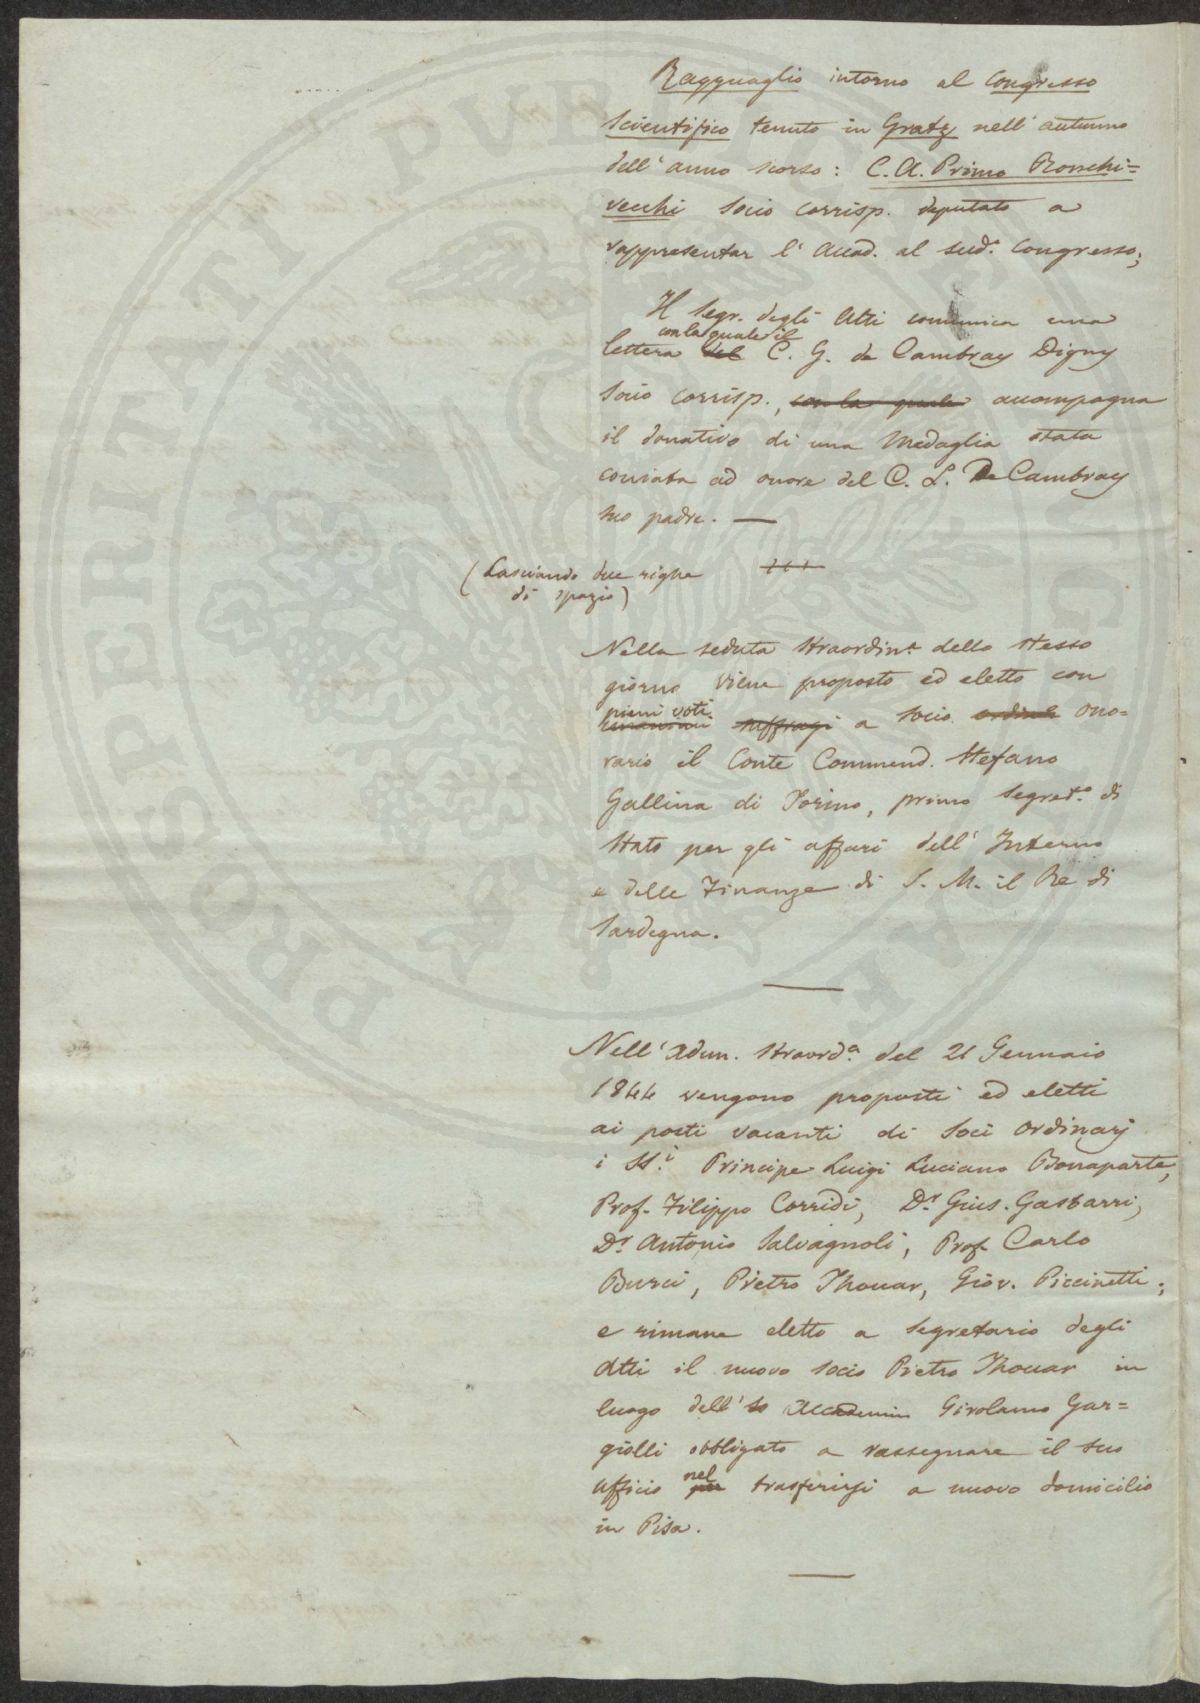 Ragguaglio intorno al Congresso
scientifico tenuto in Gratz nell'autunno
dell'anno scorso: C. A. Primo Ronchi=
vecchi Socio corrisp. deputato a
rappresentar l'Accad. al sud.º Congresso;
Il Segr. degli Atti comunica una
con la quale il
lettera del C. G. de Cambray Digny
Socio corrisp., con la quale accompagna
il donativo di una Medaglia stata
coniata ad onore del C. L. De Cambray
suo padre. —
(Lasciando due righe
di spazio)
Nella seduta straordin.ª dello stesso
giorno viene proposto ed eletto con
pieni voti
unanimi suffragi a socio ordina ono=
rario il Conte Commend. Stefano
Gallina di Torino, primo Segret.º di
Stato per gli affari dell'Interno
e delle Finanze di S. M. il Re di
Sardegna.
Nell'Adun. straord.ª del 21 Gennaio
1844 vengono proposti ed eletti
ai posti vacanti di Soci ordinarj
i SS.i Principe Luigi Luciano Bonaparte,
Prof. Filippo Corridi, D.r Gius. Gasbarri,
D.r Antonio Salvagnoli, Prof. Carlo
Burci, Pietro Thouar, Giov. Piccinetti;
e rimane eletto a segretario degli
Atti il nuovo socio Pietro Thouar in
luogo dell' Girolamo Gar=
giolli obbligato a rassegnare il suo
nel
ufficio per trasferirsi a nuovo domicilio
in Pisa.
PROSPERITATI PVBLICAE